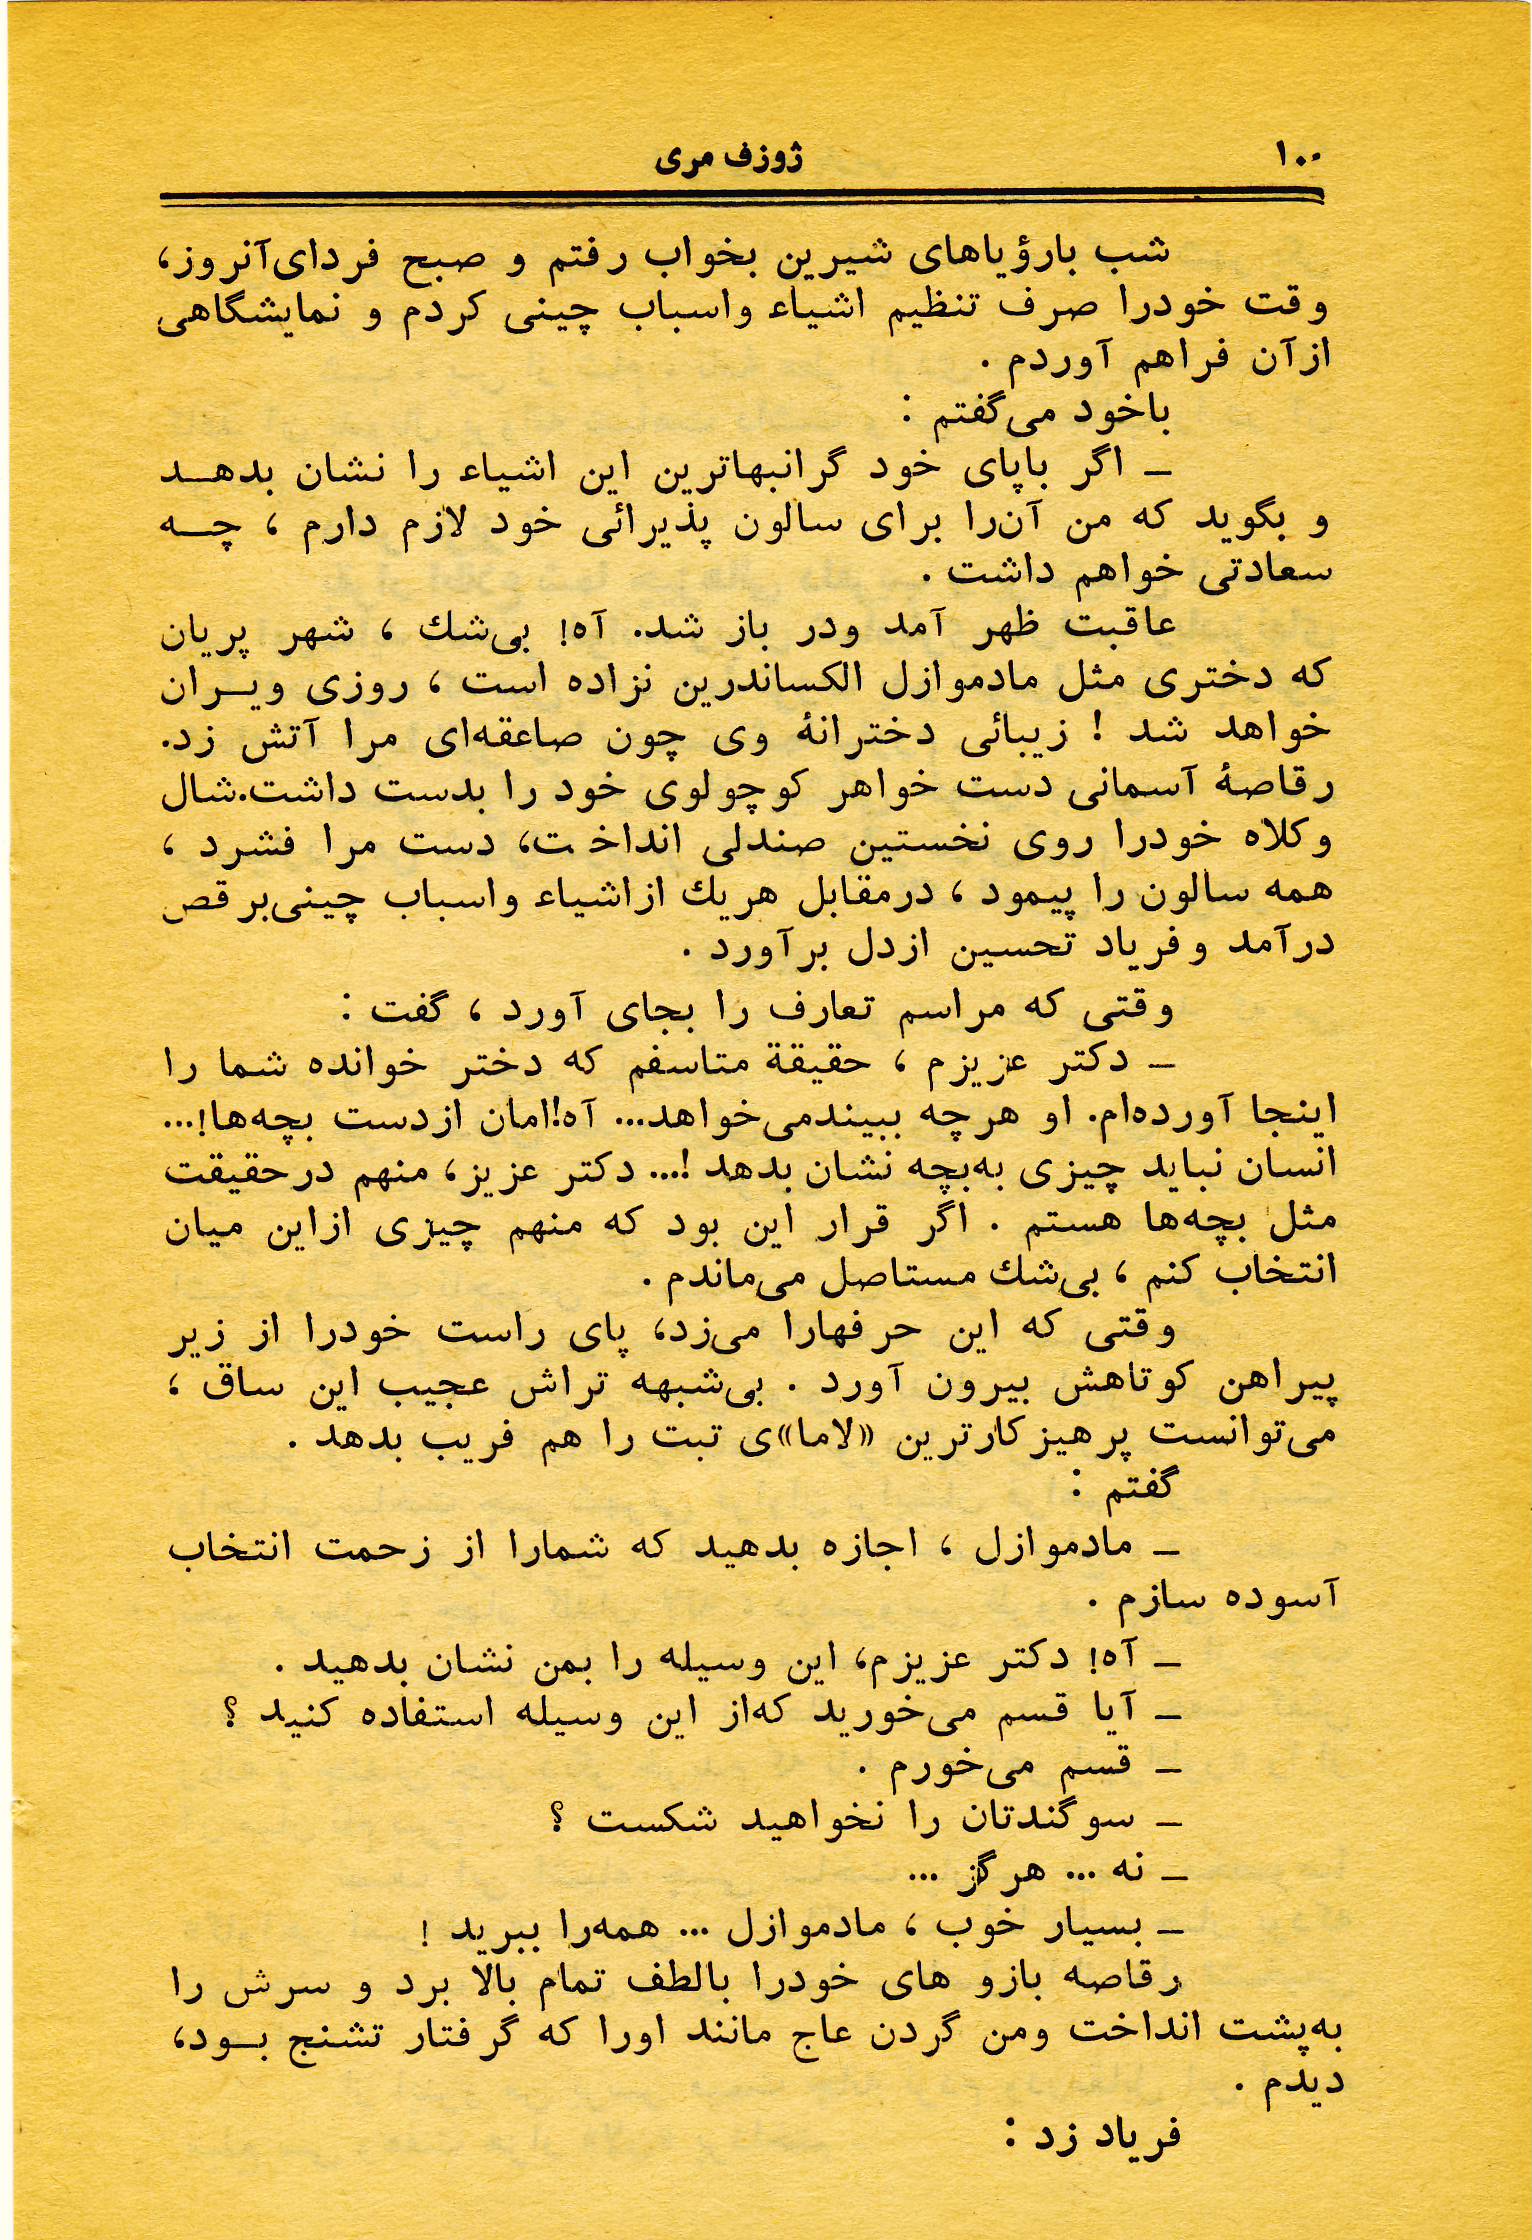 ۱۰۰ ژوزف مری
شب بارؤیاهای شیرین بخواب رفتم و صبح فردای‌آنروز،
وقت خودرا صرف تنظیم اشیاء واسباب چینی کردم و نمایشگاهی
ازآن فراهم آوردم .
باخود می‌گفتم :
ـ اگر باپای خود گرانبهاترین این اشیاء را نشان بدهـد
و بگوید که من آن‌را برای سالون پذیرائی خود لازم دارم ، چـه
سعادتی خواهم داشت .
عاقبت ظهر آمد ودر باز شد. آه! بی‌شك ، شهر پریان
که دختری مثل مادموازل الکساندرین نزاده است ، روزی ویـران
خواهد شد ! زیبائی دخترانهٔ وی چون صاعقه‌ای مرا آتش زد.
رقاصهٔ آسمانی دست خواهر کوچولوی خود را بدست داشت.شال
وکلاه خودرا روی نخستین صندلی انداخت، دست مرا فشرد ،
همه سالون را پیمود ، درمقابل هریك ازاشیاء واسباب چینی‌برقص
درآمد وفریاد تحسین ازدل برآورد .
وقتی که مراسم تعارف را بجای آورد ، گفت :
ـ دکتر عزیزم ، حقیقة متاسفم که دختر خوانده شما را
اینجا آورده‌ام. او هرچه ببیندمی‌خواهد... آه!امان ازدست بچه‌ها!...
انسان نباید چیزی به‌بچه نشان بدهد !... دکتر عزیز، منهم درحقیقت
مثل بچه‌ها هستم . اگر قرار این بود که منهم چیزی ازاین میان
انتخاب کنم ، بی‌شك مستاصل می‌ماندم .
وقتی که این حرفهارا می‌زد، پای راست خودرا از زیر
پیراهن کوتاهش بیرون آورد . بی‌شبهه تراش عجیب این ساق ،
می‌توانست پرهیزکارترین «لاما»ی تبت را هم فریب بدهد .
گفتم :
ـ مادموازل ، اجازه بدهید که شمارا از زحمت انتخاب
آسوده سازم .
ـ آه! دکتر عزیزم، این وسیله را بمن نشان بدهید .
ـ آیا قسم می‌خورید که‌از این وسیله استفاده کنید ؟
ـ قسم می‌خورم .
ـ سوگندتان را نخواهید شکست ؟
ـ نه ... هرگز ...
ـ بسیار خوب ، مادموازل ... همه‌را ببرید !
رقاصه بازو های خودرا بالطف تمام بالا برد و سرش را
به‌پشت انداخت ومن گردن عاج مانند اورا که گرفتار تشنج بـود،
دیدم .
فریاد زد :